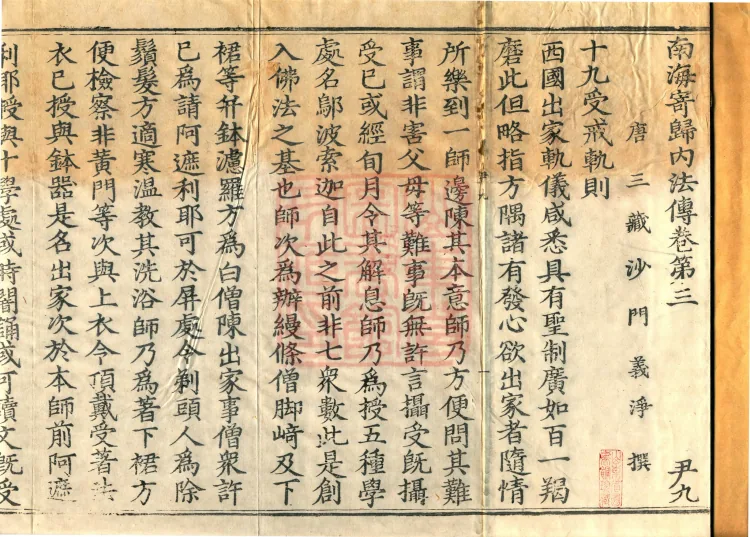 南海寄歸內法傳卷第三 尹九
唐三藏沙門義淨撰
十九受戒軌則
西國出家軌儀咸悉具有聖制廣如百一羯
磨此但略指方隅諸有發心欲出家者隨情
所樂到一師邊陳其本意師乃方便問其難
事謂非害父母等難事旣無許言攝受旣攝
受已或經旬月令其解息師乃爲授五種學
處名鄔波索迦自此之前非七衆數此是創
入佛法之基也師次爲辦縵條僧脚崎及下
裙等幷鉢濾羅方爲白僧陳出家事僧衆許
已爲請阿遮利耶可於屏處令剃頭人爲除
鬚髮方適寒温教其洗浴師乃爲著下裙方
便檢察非黃門等次與上衣令頂戴受著法
衣已授與鉢器是名出家次於本師前阿遮
利耶授與十學處或時闇誦或可讀文旣受